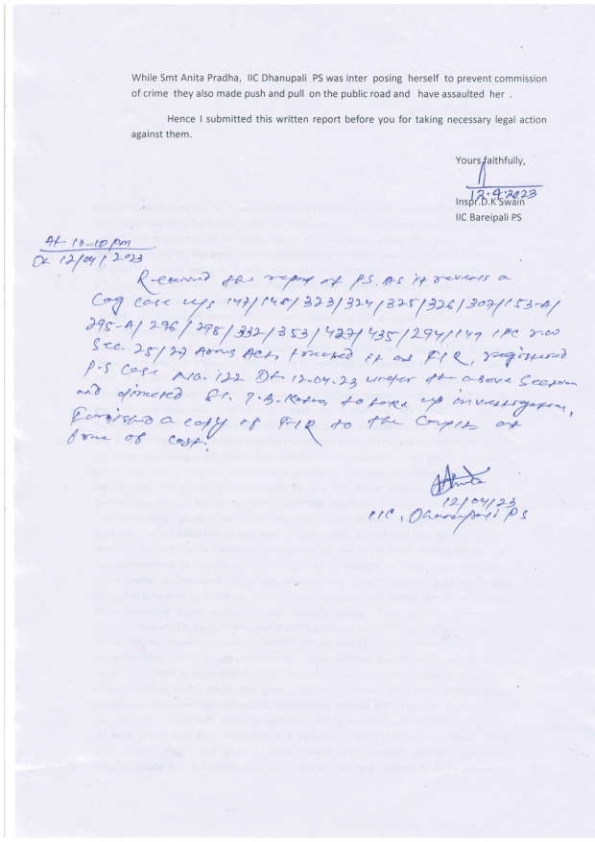 While Smt Anita Pradha, IIC Dhanupali PS was inter posing herself to prevent commission
of crime they also made push and pull on the public road and have assaulted her .
Hence I submitted this written report before you for taking necessary legal action
against them.
Yours faithfully,
12.4.2023
Inspr.D.K Swain
IIC Bareipali PS
At 10-10 pm
Dt 12/04/2023
Received the report at PS. As it reveals a
Cog case u/s 147/148/323/324/325/326/307/153-A/
295-A/296/298/332/353/427/435/294/149 IPC
Sec. 25/27 Arms Act, treated it as FIR, registered
P.S Case No. 122 Dt 12.04.23 under the above Section
and directed to take up investigation,
Furnished a copy of FIR to the Complt at
free of cost.
12/04/23
IIC, Dhanupali PS